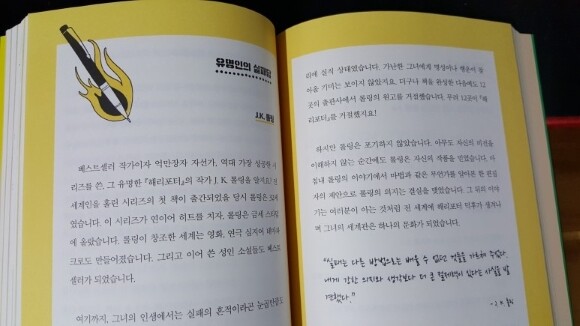 유명인의 실패담
J.K. 롤링
베스트셀러 작가이자 억만장자 자선가, 역대 가장 성공한 시
리즈를 쓴, 그 유명한 『해리포터』의 작가 J. K. 롤링을 알지요? 전
세계인을 홀린 시리즈의 첫 책이 출간되었을 당시 롤링은
있습니다. 이 시리즈가 연이어 히트를 치자, 롤링은 금세 스타덤
에 올랐습니다. 롤링이 창조한 세계는 영화, 연극 심지어 테마파
크로도 만들어졌습니다. 그리고 이어 쓴 성인 소설들도 베스트
셀러가 되었습니다.
여기까지, 그녀의 인생에서는 실패의 흔적이라곤 눈곱만큼도
리에 실직 상태였습니다. 가난한 그녀에게 명성이나 행운이 찾
아올 기미는 보이지 않았지요. 더구나 책을 완성한 다음에도 12
곳의 출판사에서 롤링의 원고를 거절했습니다. 무려 12곳이 『해
리포터』를 거절했지요!
하지만 롤링은 포기하지 않았습니다. 아무도 자신의 비전을
이해하지 않는 순간에도 롤링은 자신의 작품을 믿었습니다. 마
침내 롤링의 이야기에서 마법과 같은 무언가를 알아본 한 편집
자의 제안으로 롤링의 의지는 결실을 맺었습니다. 그 뒤의 이야
기는 여러분이 아는 것처럼 전 세계에 해리포터 덕후가 생겨나
며 그녀의 세계관은 하나의 문화가 되었습니다.
"실패는 다른 방법으로는 배울 수 없던 것들을 가르쳐 주었다.
내게 강한 의지와 생각보다 더 큰 절제력이 있다는 사실을 발
견했다."
- J. K. 롤링